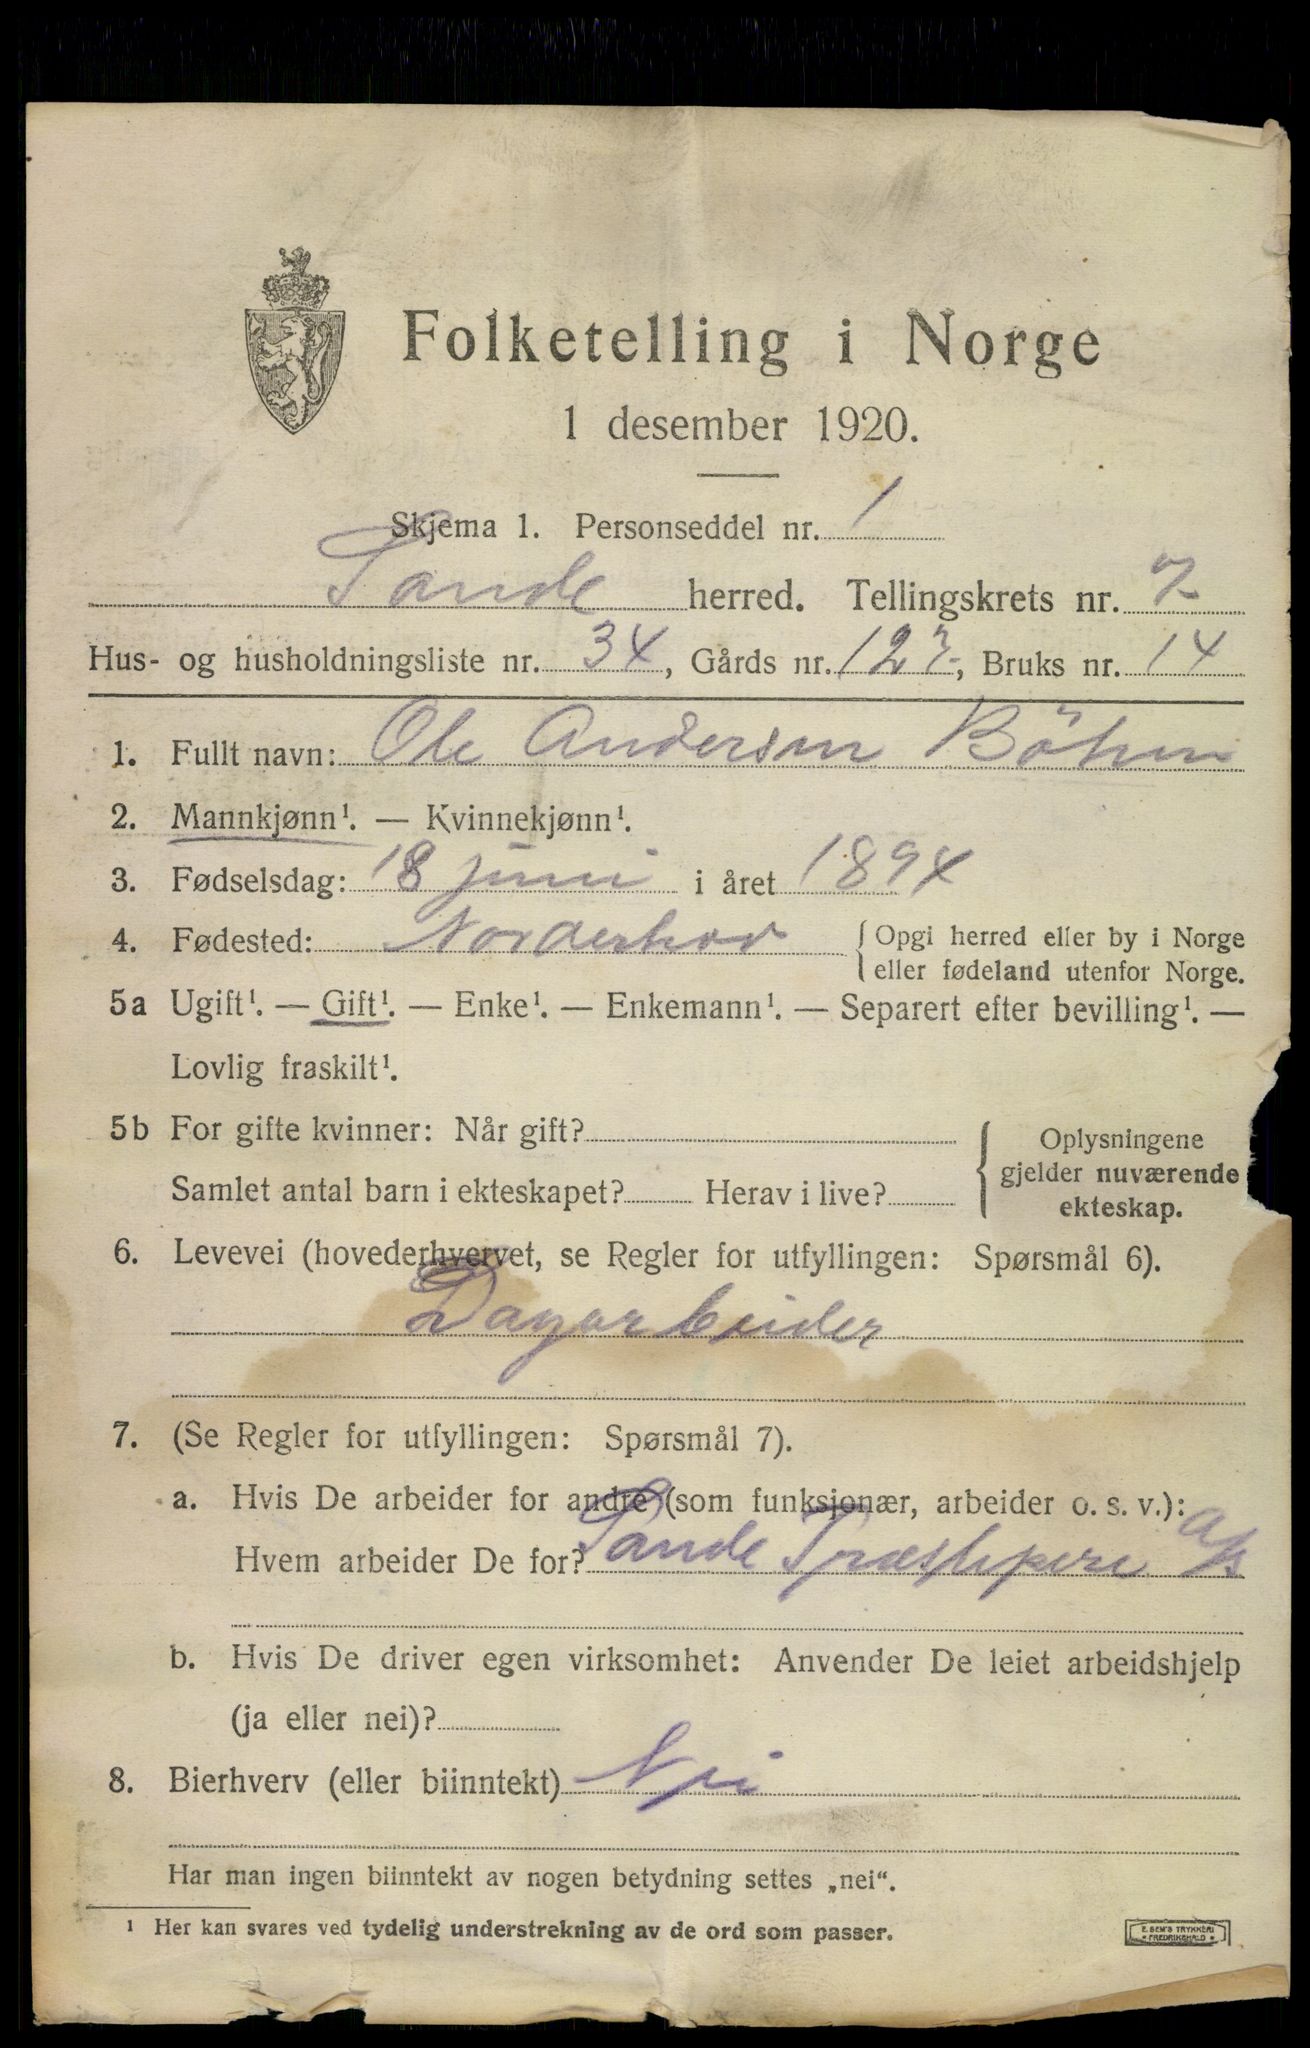 Folketelling i Norge
1 desember 1920.
Skjema 1. Personseddel nr. 1
Sande herred. Tellingskrets nr. 7
Hus- og husholdningsliste nr. 34, Gårds nr. 127, Bruks nr. 14
1. Fullt navn: Ole Andersen Böhm
2. Mannkjønn¹. — Kvinnekjønn¹.
3. Fødselsdag: 18 juni i året 1894
4. Fødested: Norderhov { Opgi herred eller by i Norge
eller fødeland utenfor Norge.
5a Ugift¹. — Gift¹. — Enke¹. — Enkemann¹. — Separert efter bevilling¹. —
Lovlig fraskilt¹.
5b For gifte kvinner: Når gift?
Samlet antal barn i ekteskapet? Herav i live?
{ Oplysningene
gjelder nuværende
ekteskap.
6. Levevei (hovederhvervet, se Regler for utfyllingen: Spørsmål 6).
Dagarbeider
7. (Se Regler for utfyllingen: Spørsmål 7).
a. Hvis De arbeider for andre (som funksjonær, arbeider o. s. v.):
Hvem arbeider De for? Sande Træsliperi A/S
b. Hvis De driver egen virksomhet: Anvender De leiet arbeidshjelp
(ja eller nei)?
8. Bierhverv (eller biinntekt) Nei
Har man ingen biinntekt av nogen betydning settes „nei“.
¹ Her kan svares ved tydelig understrekning av de ord som passer.
E. SEM'S TRYKKERI
FREDRIKSHALD